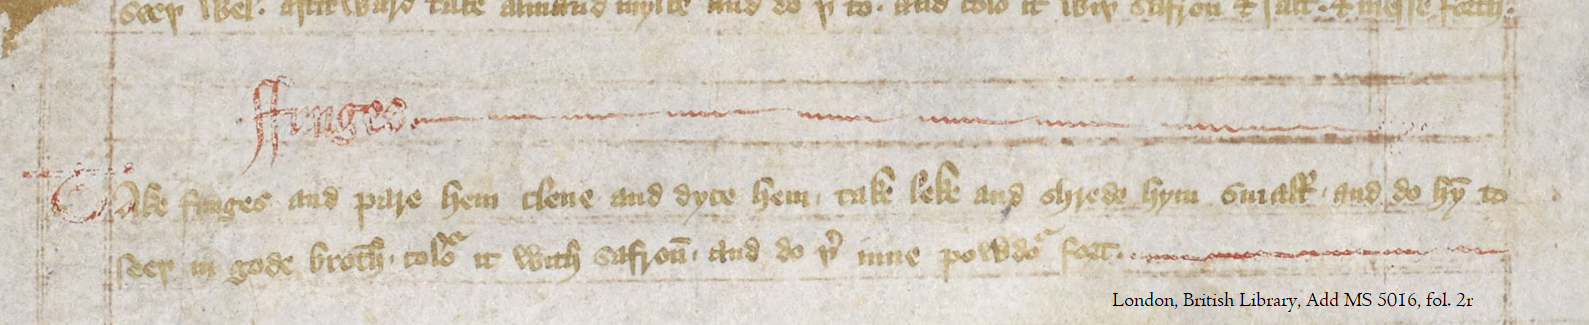 seeþ wel. aftirward take almaund mylke and do þ to. and colo it wiþ safron & salt. & messe forth.
ffunges
Take funges and pare hem clene and dyce hem. take leke and shrede hym small. and do hȳ to
seeþ in gode broth. colo it with safron. and do þ inne powdo fort.
London, British Library, Add MS 5016, fol. 2r